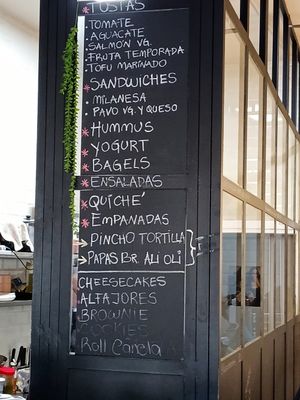 * TOSTAS
. TOMATE
. AGUACATE
. SALMÓN VG.
. FRUTA TEMPORADA
. TOFU MARINADO
* SANDWICHES
. MILANESA
. PAVO VG. Y QUESO
* HUMMUS
* YOGURT
* BAGELS
* ENSALADAS
* QUICHÉ
* EMPANADAS
→ PINCHO TORTILLA
→ PAPAS BR. ALI OLI
CHEESECAKES
ALFAJORES
BROWNIE
COOKIES
Roll Canela